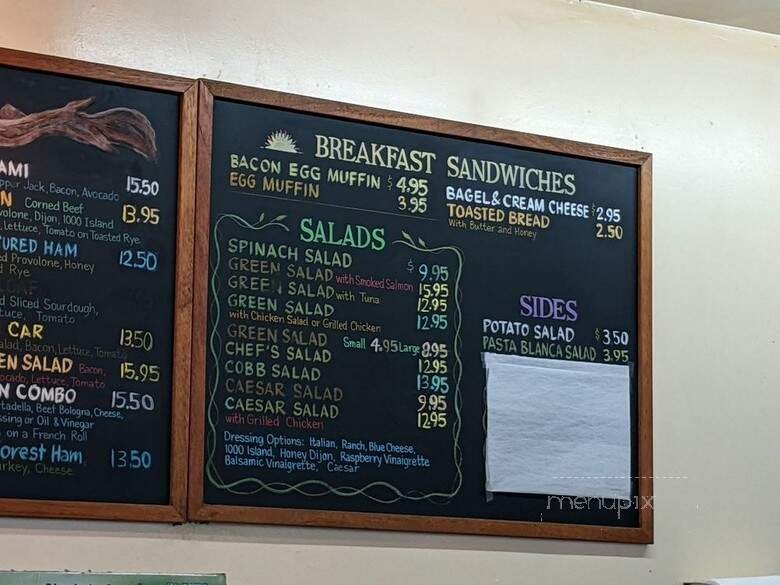 AMI
pper Jack, Bacon, Avocado 15.50
N Corned Beef
volone, Dijon, 1000 Island 13.95
Lettuce, Tomato on Toasted Rye
TURED HAM
d Provolone, Honey 12.50
Rye
d Sliced Sourdough,
tuce, Tomato
CAR 13.50
alad, Bacon, Lettuce, Tomato
EN SALAD Bacon, 15.95
vocado, Lettuce, Tomato
N COMBO 15.50
tadella, Beef Bologna, Cheese,
ssing or Oil & Vinegar
on a French Roll
orest Ham, 13.50
urkey, Cheese
BREAKFAST SANDWICHES
BACON EGG MUFFIN $4.95
EGG MUFFIN 3.95
BAGEL & CREAM CHEESE $2.95
TOASTED BREAD 2.50
With Butter and Honey
SALADS
SPINACH SALAD $9.95
GREEN SALAD with Smoked Salmon 15.95
GREEN SALAD with Tuna 12.95
GREEN SALAD 12.95
with Chicken Salad or Grilled Chicken
GREEN SALAD Small 4.95 Large 8.95
CHEF'S SALAD 12.95
COBB SALAD 13.95
CAESAR SALAD 9.95
CAESAR SALAD 12.95
with Grilled Chicken
Dressing Options: Italian, Ranch, Blue Cheese,
1000 Island, Honey Dijon, Raspberry Vinaigrette
Balsamic Vinaigrette, Caesar
SIDES
POTATO SALAD $3.50
PASTA BLANCA SALAD 3.95
menupix